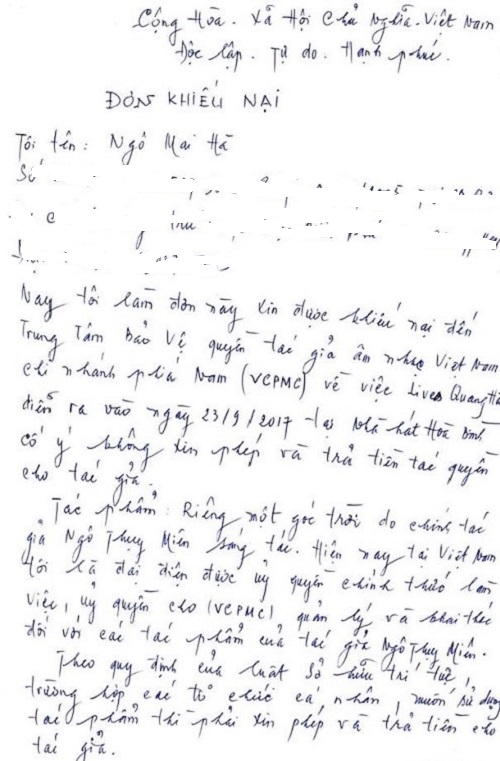 Cộng Hòa. Xã Hội Chủ Nghĩa. Việt Nam
Độc lập. Tự do. Hạnh phúc.
ĐƠN KHIẾU NẠI
Tôi tên: Ngô Mai Hà
Số
Nay tôi làm đơn này xin được khiếu nại đến
Trung Tâm Bảo Vệ quyền tác giả âm nhạc Việt Nam
chi nhánh phía Nam (VCPMC) về việc Lives Quang Hà
diễn ra vào ngày 23/9/2017 tại Nhà hát Hoà Bình
cố ý không xin phép và trả tiền tác quyền
cho tác giả.
Tác phẩm: Riêng một góc trời do chính tác
giả Ngô Thụy Miên sáng tác. Hiện nay tại Việt Nam
tôi là đại diện được uỷ quyền chính thức làm
việc, uỷ quyền cho (VCPMC) quản lý và khai thác
đối với các tác phẩm của tác giả Ngô Thụy Miên.
Theo quy định của luật Sở hữu trí tuệ,
trường hợp các tổ chức cá nhân, muốn sử dụng
tác phẩm thì phải xin phép và trả tiền cho
tác giả.